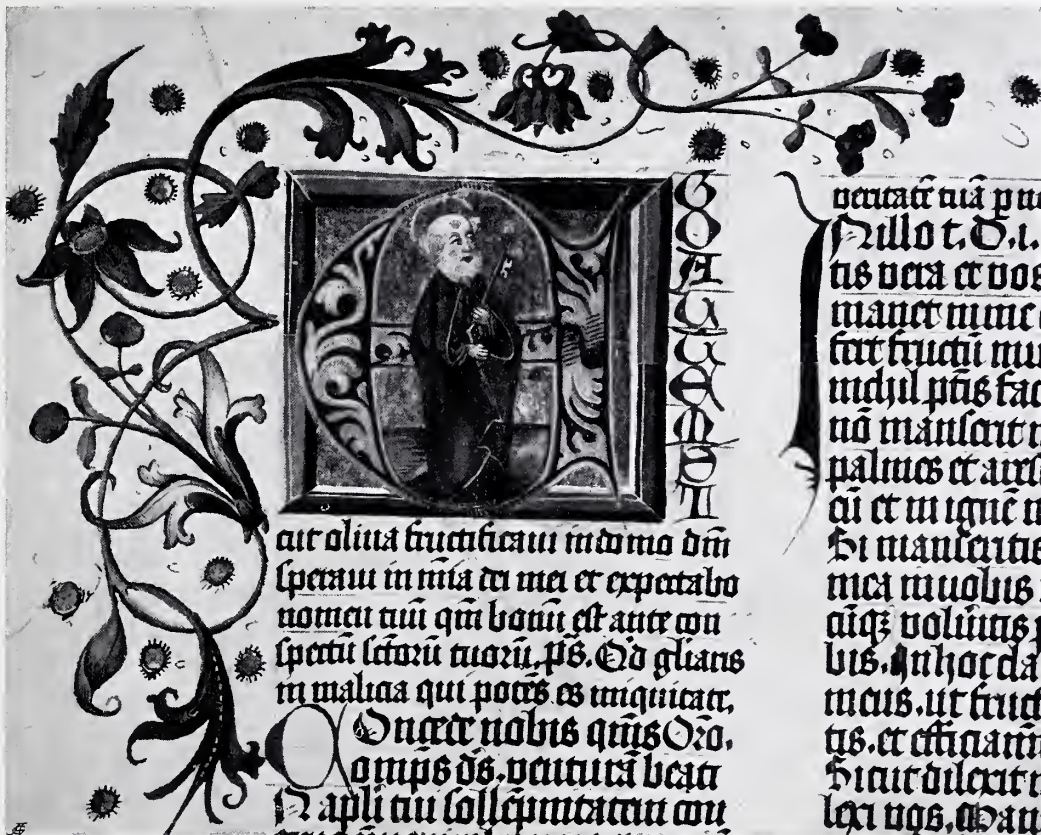 E
G
O
A
U
T
E
M
S
I
cut oliua fructificaui in domo dn̄i
speraui in mīa dei mei et expectabo
nomen tuū qm̄ bonū est ante con
spectū sctorū tuorū. p̄s. Qd gliaris
in malicia qui potēs es iniquitate.
Concede nobis qm̄s Orō.
omp̄s d̄s. venturā beati
N apl̄i tui sollēpnitatem con
veritatē tuā
In illo t. D. i.
tis vera et vos
manet in me
fert fructū mu
nichil
nō manserit
palmes et
cū et in ignē
Si manseritis
mea in uobis
cūq; volūitis
bis. In hoc cla
meus. ut fruct
tis. et efficiami
Sicut dilexit
lexi vos. Man